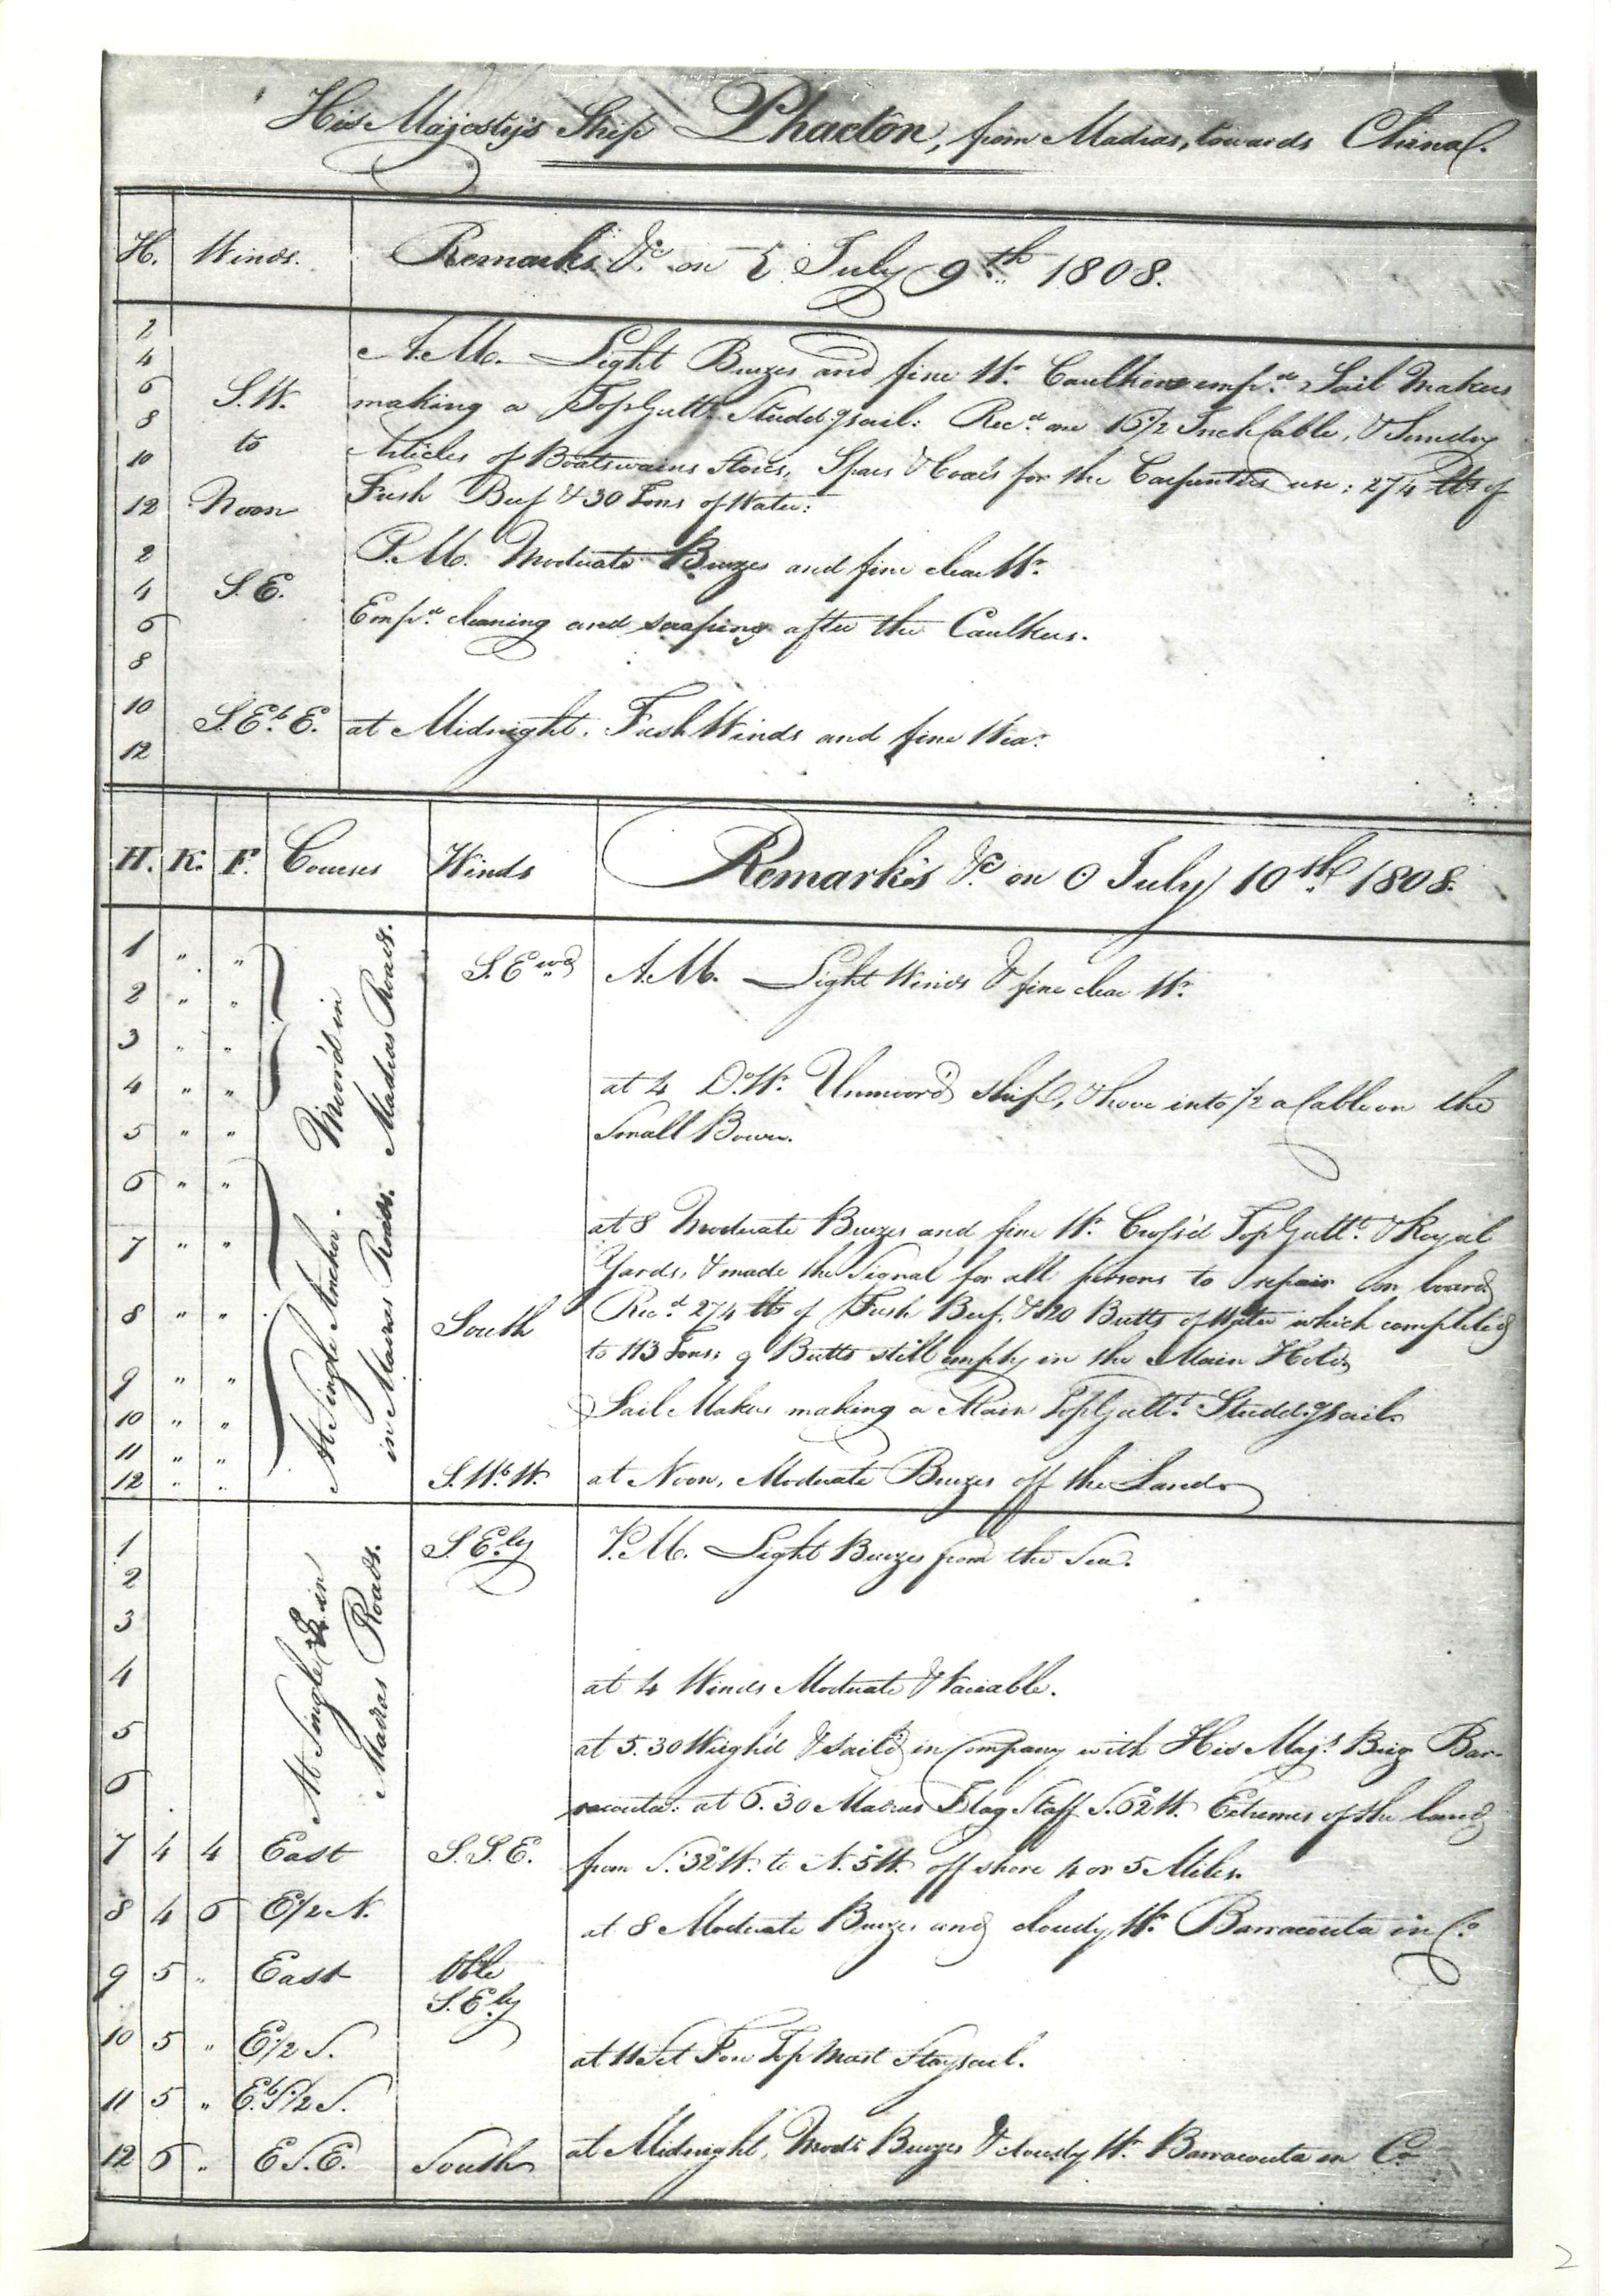 His Majesty's Ship Phaeton, from Madras, towards China.
H. Winds. Remarks &c. on ♄ July 9th 1808.
2
4 A.M. Light Breezes and fine Wr. Caulkers empd. Sail Makers
6 S.W. making a TopGallt. Studdgsail: Recd. one 16 1/2 Inch Cable, & Sundry
8 to Articles of Boatswains Stores, Spars & Coals for the Carpenters use; 274 lbs of
10 Fresh Beef & 30 Tons of Water:
12 Noon
2 P.M. Moderate Breezes and fine clear Wr.
4 S.E.
6 Empd. cleaning and scraping after the Caulkers.
8
10 S.Eb.E. at Midnight. Fresh Winds and fine Wear.
12
H. K. F. Courses Winds Remark's &c. on ☉ July 10th. 1808.
Moor'd in
Madras Roads.
At Single Anchor.
in Madras Roads.
1 " " S.Ewd A.M. Light Winds & fine clear Wr.
2 " "
3 " "
4 " " at 4 Do. Wr. Unmoor'd Ship, & hove into 1/2 a Cable on the
5 " " Small Bower.
6 " "
7 " " at 8 Moderate Breezes and fine Wr. Cross'd TopGallt. & Royal
Yards, & made the Signal for all persons to repair on board
8 " " South Recd. 274 lbs of Fresh Beef, & 20 Butts of Water which completed
to 113 Tons; 9 Butts still empty in the Main Hold,
9 " "
10 " " Sail Makers making a Main TopGallt. Studdgsail.
11 " "
12 " " S.Wb.W. at Noon, Moderate Breezes off the Land.
At Single in
Madras Roads.
1 S.Ely P.M. Light Breezes from the Sea.
2
3
4 at 4 Winds Moderate & Variable.
5 at 5.30 Weigh'd & sail'd in Company with His Majs. Brig Bar-
6 racouta: at 6.30 Madras Flag Staff S.62°W. Extremes of the land
7 4 4 East S.S.E. from S.32°W. to N.5°W. off shore 4 or 5 Miles.
8 4 6 E1/2N. at 8 Moderate Breezes and cloudy Wr. Barracouta in Co.
9 5 " East Vble
S.Ely
10 5 " E1/2S. at 11 Set Fore TopMast Staysail.
11 5 " Eb.S1/2S.
12 6 " E.S.E. South at Midnight, Modt. Breezes & cloudy Wr. Barracouta in Co.
2